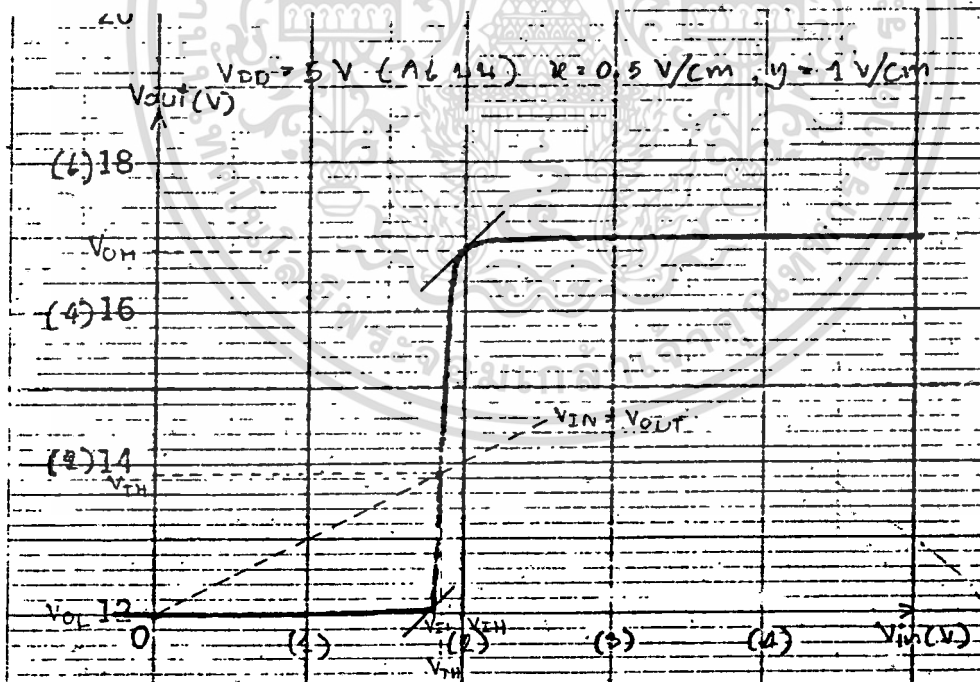 20
VDD = 5 V (A6 14) x = 0.5 V/cm , y = 1 V/cm
Vout (V)
(6) 18
VOH
(4) 16
VIN = VOUT
(2) 14
VTH
VOL 12
0
(1)
VIL
(2)
VIH
(3)
(4)
Vin (V)
VTH